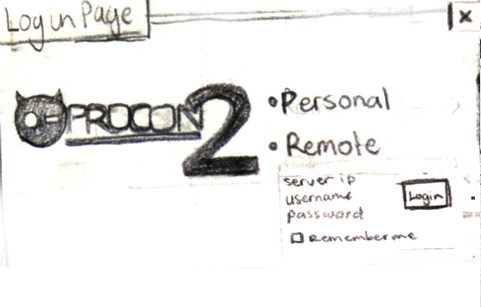 Login Page
X
PROCON 2
• Personal
• Remote
server ip
username
password
Login
Remember me